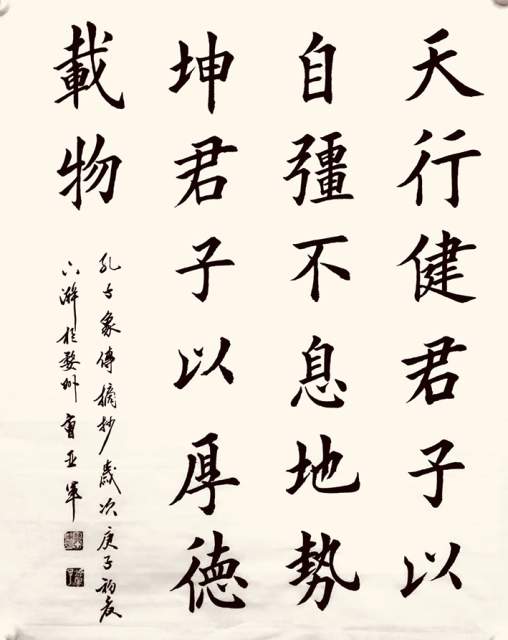 天行健君子以
自彊不息地勢
坤君子以厚德
載物
象傳摘抄歲次庚子初夏
於婺州曹亚军